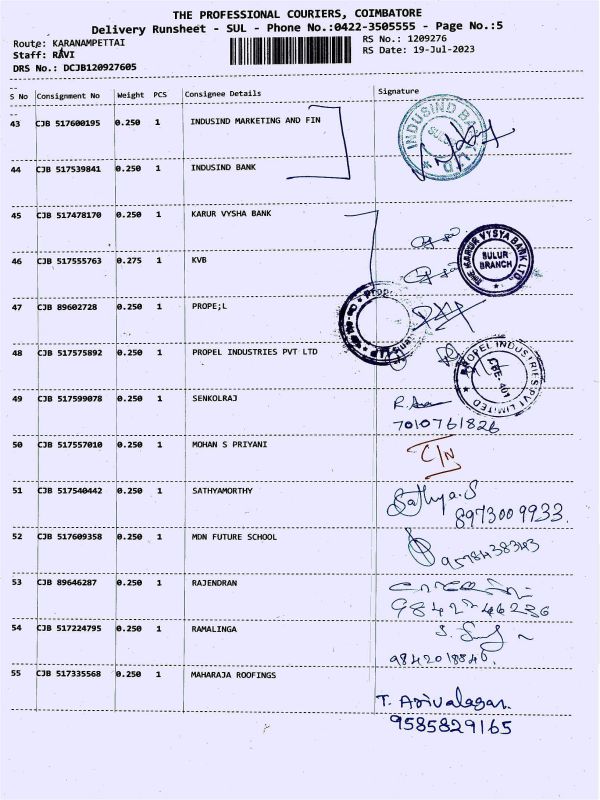 THE PROFESSIONAL COURIERS, COIMBATORE
Delivery Runsheet - SUL - Phone No.:0422-3505555 - Page No.:5
Route: KARANAMPETTAI
RS No.: 1209276
Staff: RAVI
RS Date: 19-Jul-2023
DRS No.: DCJB120927605
S No Consignment No Weight PCS Consignee Details Signature
43 CJB 517600195 0.250 1 INDUSIND MARKETING AND FIN
INDUSIND BANK LTD
SULUR
44 CJB 517539841 0.250 1 INDUSIND BANK
45 CJB 517478170 0.250 1 KARUR VYSHA BANK
THE KARUR VYSYA BANK LTD
SULUR
BRANCH
46 CJB 517555763 0.275 1 KVB
47 CJB 89602728 0.250 1 PROPE;L
48 CJB 517575892 0.250 1 PROPEL INDUSTRIES PVT LTD
PROPEL INDUSTRIES PVT LIMITED
CBE-401
49 CJB 517599078 0.250 1 SENKOLRAJ
7010761826
50 CJB 517557010 1 0.250 1 MOHAN S PRIYANI
C/N
51 CJB 517540442 0.250 1 SATHYAMORTHY
Sathya.S
8973009933.
52 CJB 517609358 0.250 1 MDN FUTURE SCHOOL
9578438343
53 CJB 89646287 0.250 1 RAJENDRAN
9842246286
54 CJB 517224795 0.250 1 RAMALINGA
9842018840.
55 CJB 517335568 0.250 1 MAHARAJA ROOFINGS
T. Arivalagan.
9585829165